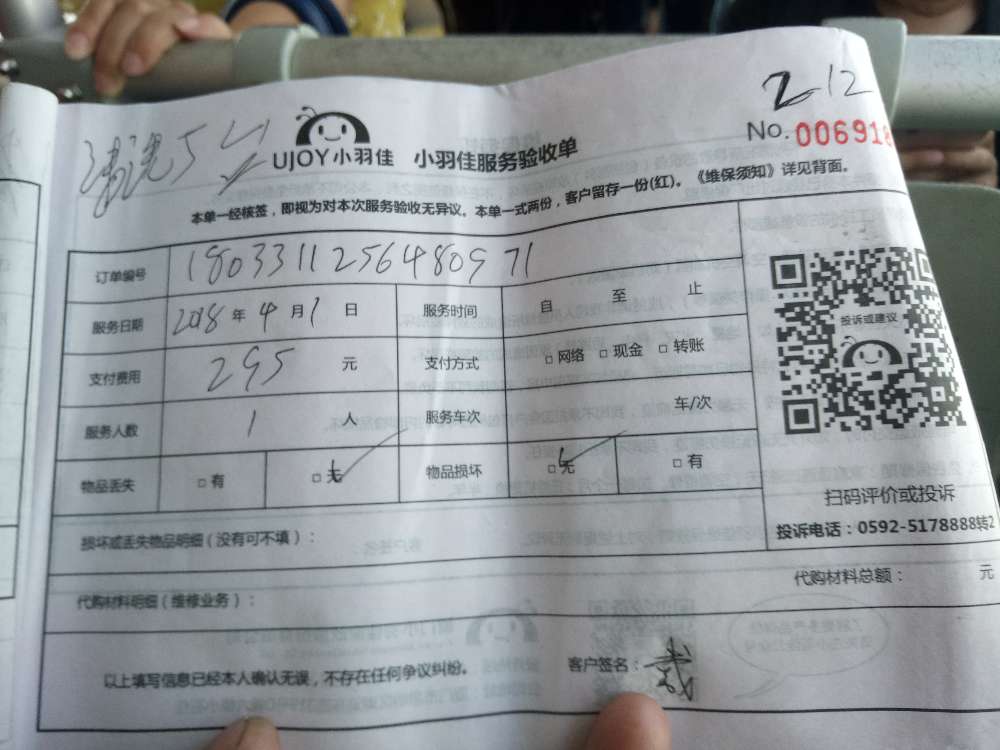 212
No. 006918
清洗5台
UJOY小羽佳 小羽佳服务验收单
本单一经核签，即视为对本次服务验收无异议。本单一式两份，客户留存一份(红)。《维保须知》详见背面。
订单编号 18033112564480971
服务日期 2018 年 4 月 1 日 服务时间 自 至 止
支付费用 295 元 支付方式 □网络 □现金 □转账
服务人数 1 人 服务车次 车/次
物品丢失 □有 □无 物品损坏 □无 □有
投诉或建议
扫码评价或投诉
投诉电话：0592-5178888转2
损坏或丢失物品明细（没有可不填）：
代购材料明细（维修业务）： 代购材料总额： 元
以上填写信息已经本人确认无误，不存在任何争议纠纷。 客户签名：